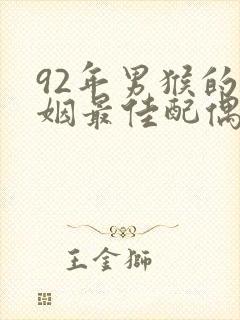 92年男猴的
姻最佳配偶
王金狮